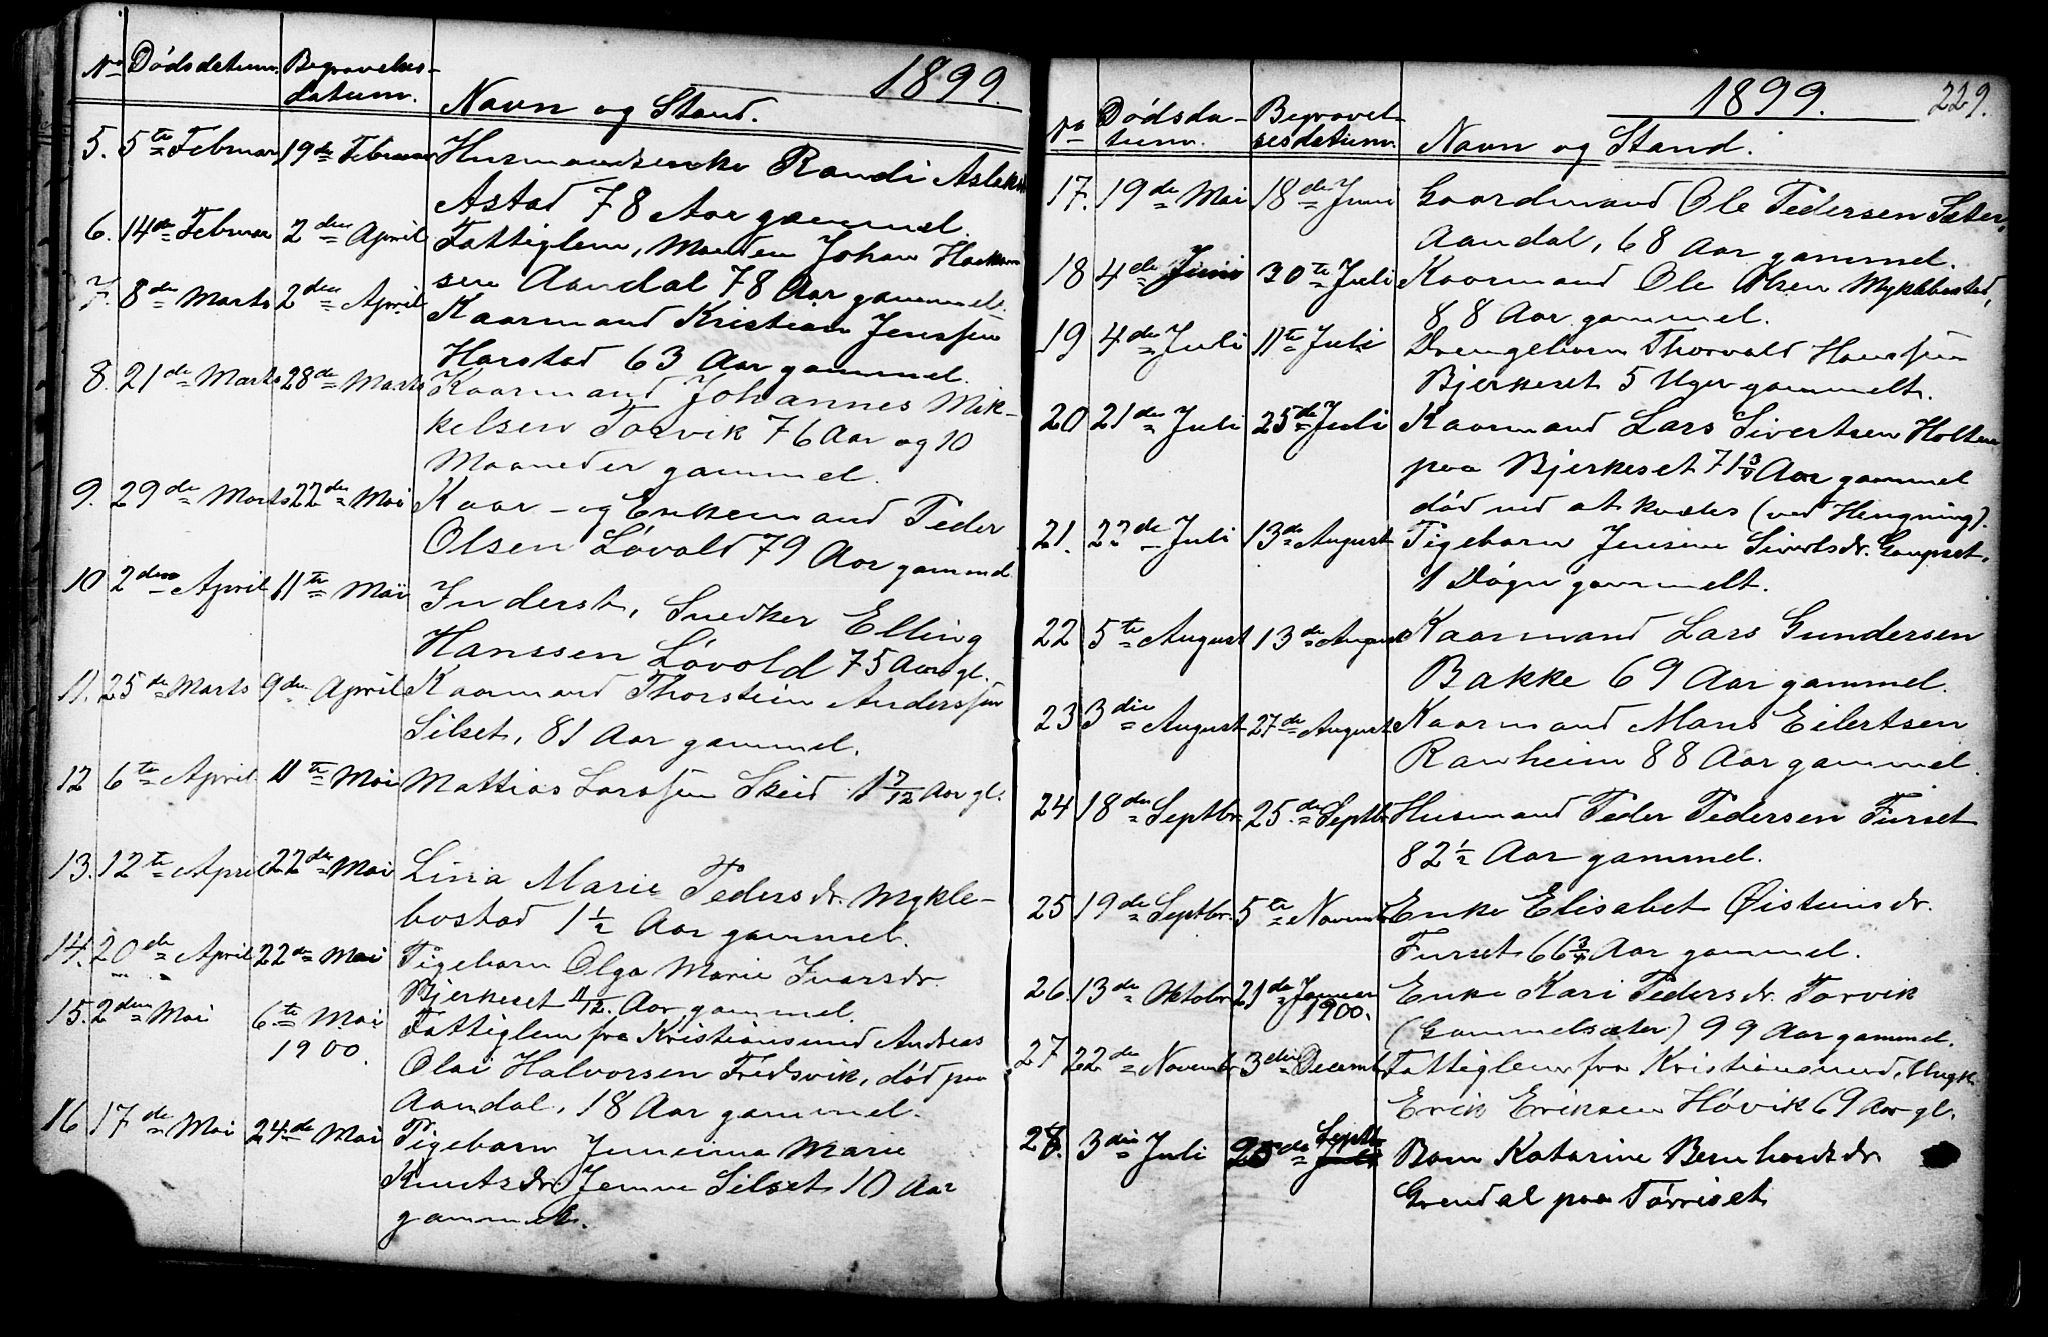 No Dødsdatum. Begravelses-
datum. Navn og Stand. 1899.
5. 5te Februar 19de Februar Husmandsenke Randi Aslaks
Astad 78 Aar gammel.
6. 14de Februar 2den April Fattiglem, Manden Johan Haakon
sen Aandal 78 Aar gammel.
7. 8de Marts 2den April Kaarmand Kristian Jenssen
Harstad 63 Aar gammel.
8. 21de Marts 28de Marts Kaarmand Johannes Mik-
kelsen Torvik 76 Aar og 10
Maaneder gammel.
9. 29de Marts 22de Mai Kaar- og Enkemand Peder
Olsen Løvold 79 Aar gammel
10 2den April 11te Mai Inderst, Snedker Elling
Hanssen Løvold 75 Aar gl.
11. 25de Marts 9de April Kaarmand Thorstein Anderssen
Silset, 81 Aar gammel.
12 6te April 11te Mai Mattias Larssen Skeid 1 7/12 Aar gl.
13. 12te April 22de Mai Lina Marie Pedersdr. Mykle-
bostad 1 1/2 Aar gammel.
14. 20de April 22de Mai Pigebarn Olga Marie Ivarsdr.
Bjerkeset 11/12 Aar gammel.
15. 2den Mai 6te Mai Fattiglem fra Kristiansund Andreas
1900. Olai Halvorsen Fredsvik, død paa
Aandal, 18 Aar gammel.
16 17de Mai 24de Mai Pigebarn Jensine Marie
Knutsdr. Silset 10 Aar
gammel.
1899. 229.
No Dødsda-
tum. Begravel-
sesdatum. Navn og Stand.
17. 19de Mai 18de Juni Gaardmand Ole Pedersen Sæter,
Aandal, 68 Aar gammel.
18 4de Juni 30te Juli Kaarmand Ole Olsen Myklebostad,
88 Aar gammel.
19 4de Juli 11te Juli Drengebarn Thorvald Hanssen
Bjerkeset 5 Uger gammelt.
20 21de Juli 25de Juli Kaarmand Lars Sivertsen Holten
paa Bjerkeset 71 3/4 Aar gammel
død ved at kvæles (ved Hengning).
21. 22de Juli 13de August Pigebarn Jensine Sivertsdr. Gaupset,
1 Døgn gammelt.
22 5te August 13de August Kaarmand Lars Gundersen
Bakke 69 Aar gammel.
23 3die August 27de August Kaarmand Mans Eilertsen
Ranheim 88 Aar gammel.
24 18de Septbr. 25de Septbr Husmand Peder Pedersen Furset
82 1/2 Aar gammel.
25 19de Septbr. 5te Novembr Enke Elisabet Øisteinsdr.
Furset 66 3/4 Aar gammel.
26. 13de Oktobr 21de Januar Enke Kari Pedersdr. Torvik
1900. (Gammelsæter) 99 Aar gammel.
27 22de Novembr 3die Decembr Fattiglem fra Kristiansund, Ungk.
Erik Eriksen Høvik 69 Aar gl.
28. 3die Juli 25de Septbr Barn Katarine Bernhardsdr
Grendal paa Tørriset